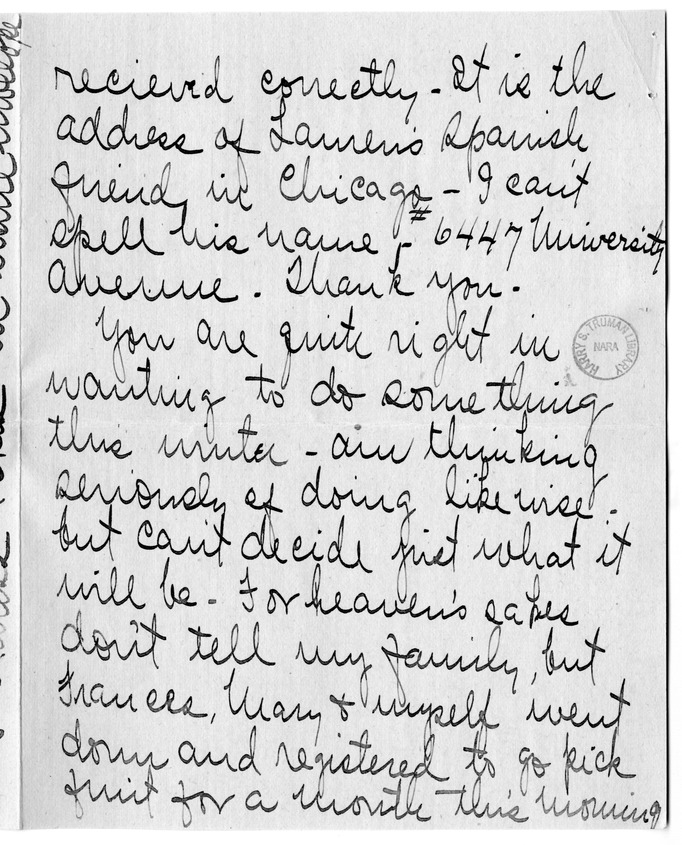 recieved correctly - It is the
address of Lauren's Spanish
friend, in Chicago - I can't
spell his name - #6447 University
Avenue. Thank you.
You are quite right in
wanting to do something
this winter - am thinking
seriously of doing likewise -
but can't decide just what it
will be - For heaven's sakes
don't tell my family, but
Frances, Mary & myself went
down and registered to go pick
fruit for a month this morning
HARRY S. TRUMAN LIBRARY
NARA